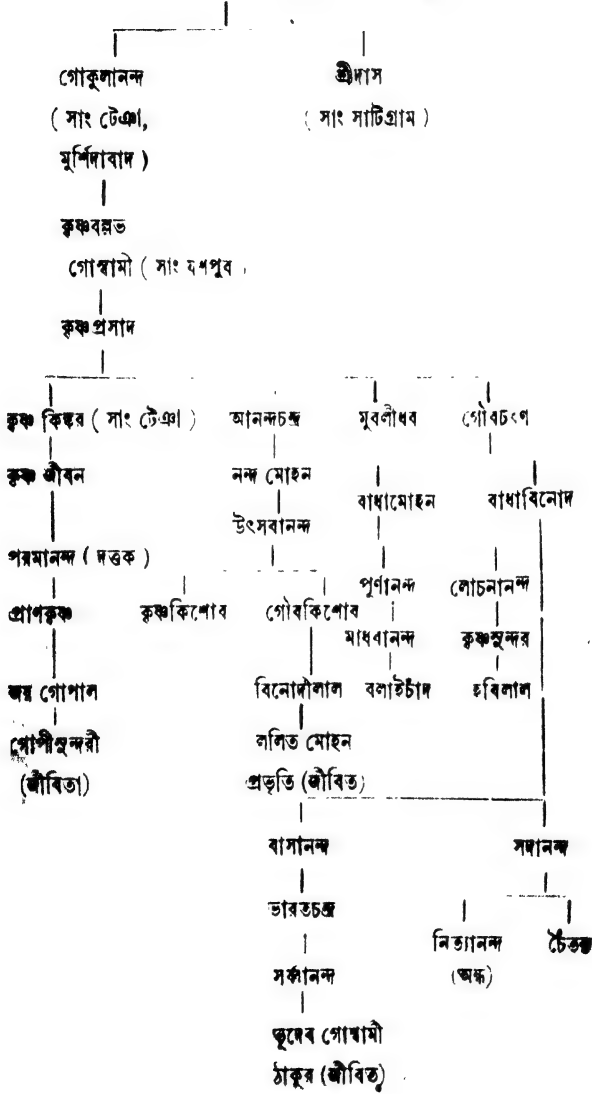 গোকুলানন্দ শ্রীদাস
( সাং টেঞা, ( সাং সাটিগ্রাম )
মুর্শিদাবাদ )
কৃষ্ণবল্লভ
গোস্বামী ( সাং যশপুর
কৃষ্ণপ্রসাদ
কৃষ্ণ কিঙ্কর ( সাং টেঞা ) আনন্দচন্দ্র মুরলীধর গৌরচরণ
কৃষ্ণ জীবন নন্দ মোহন
রাধামোহন রাধাবিনোদ
উৎসবানন্দ
পরমানন্দ ( দত্তক )
পূর্ণানন্দ লোচনানন্দ
প্রাণকৃষ্ণ কৃষ্ণকিশোর গৌরকিশোর
মাধবানন্দ কৃষ্ণসুন্দর
জয় গোপাল বিনোদীলাল বলাইচাঁদ হরিলাল
গোপীসুন্দরী ললিত মোহন
(জীবিতা) প্রভৃতি (জীবিত)
রাসানন্দ সদানন্দ
ভারতচন্দ্র
নিত্যানন্দ চৈতন্য
(অন্ধ)
সর্ব্বানন্দ
ভূদেব গোস্বামী
ঠাকুর (জীবিত)